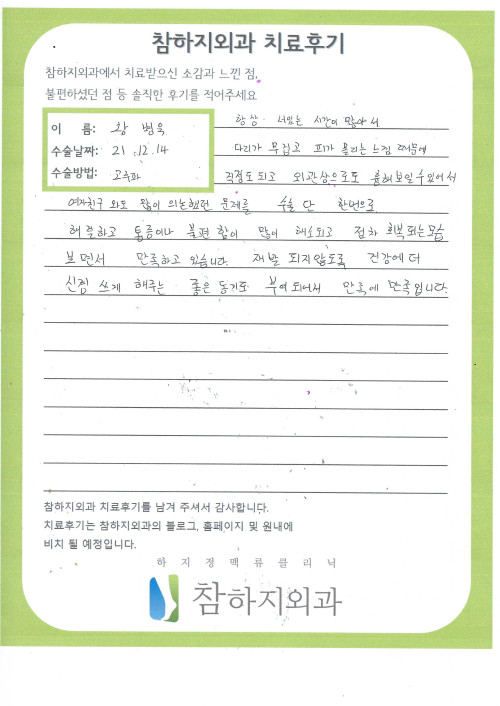 참하지외과 치료후기
참하지외과에서 치료받으신 소감과 느낀 점,
불편하셨던 점 등 솔직한 후기를 적어주세요
이 름: 황 병욱
수술날짜: 21. 12. 14
수술방법: 고주파
항상 서있는 시간이 많아서
다리가 무겁고 피가 몰리는 느낌 때문에
걱정도 되고 외관상으로도 흉해보일수있어서
여자친구 와도 많이 의논했던 문제를 수술 단 한번으로
해결하고 통증이나 불편함이 많이 해소되고 점차 회복되는모습
보면서 만족하고 있습니다. 재발 되지않도록 건강에 더
신경 쓰게 해주는 좋은 동기도 부여되어서 만족에 만족입니다.
참하지외과 치료후기를 남겨 주셔서 감사합니다.
치료후기는 참하지외과의 블로그, 홈페이지 및 원내에
비치 될 예정입니다.
하지정맥류클리닉
참하지외과